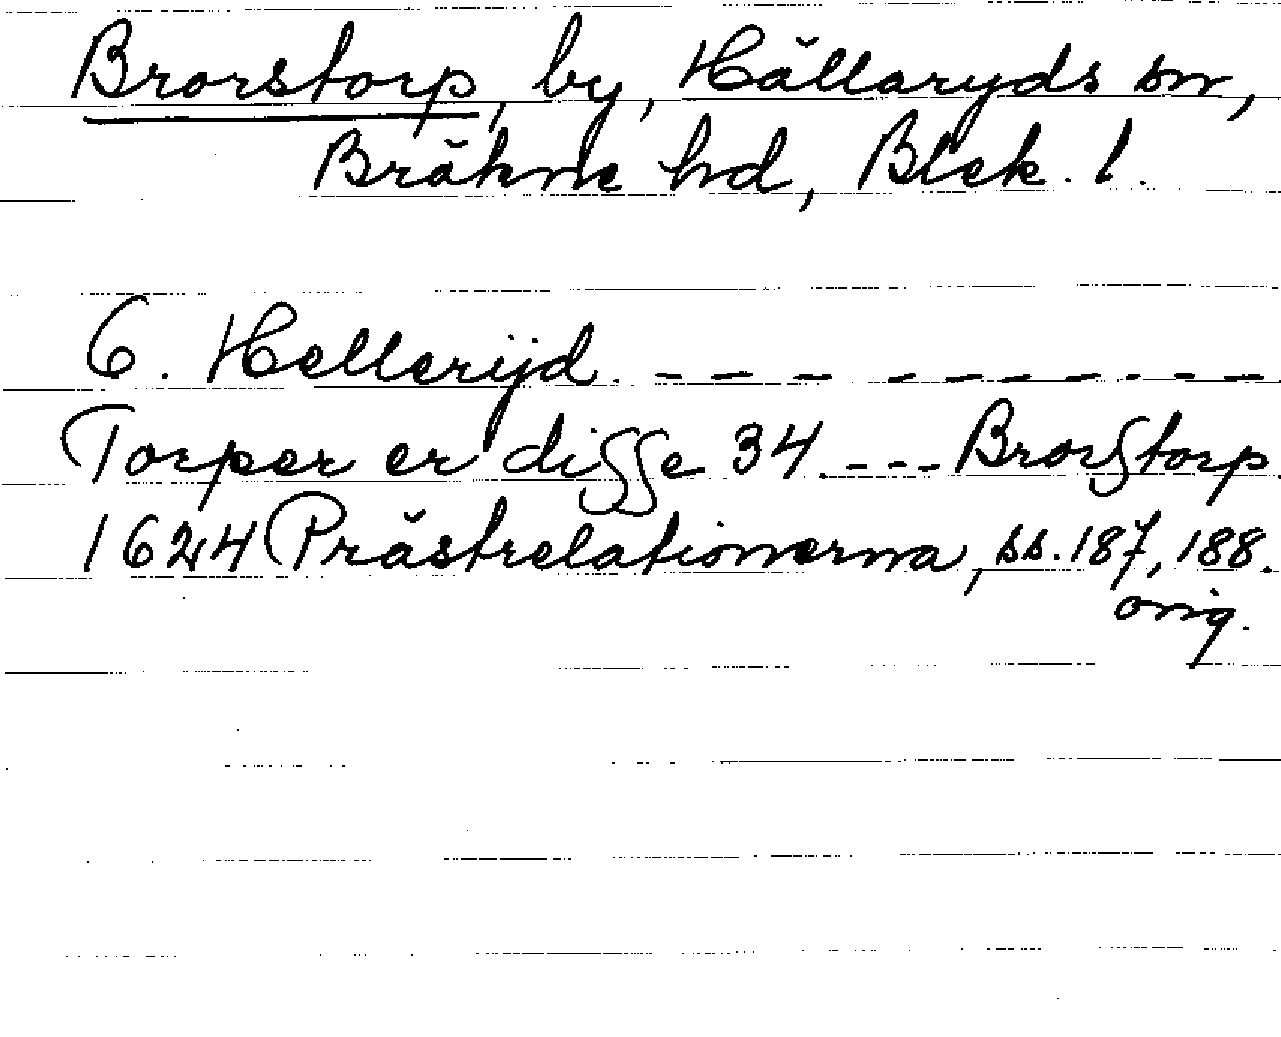 Brorstorp, by, Hällaryds sn,
Bräkne hd, Blek. l.
6. Hellerijd. - - - - - - - - - -
Torper er disse 34. - - - Brorstorp
1624 Prästrelationerna, ss. 187, 188.
orig.